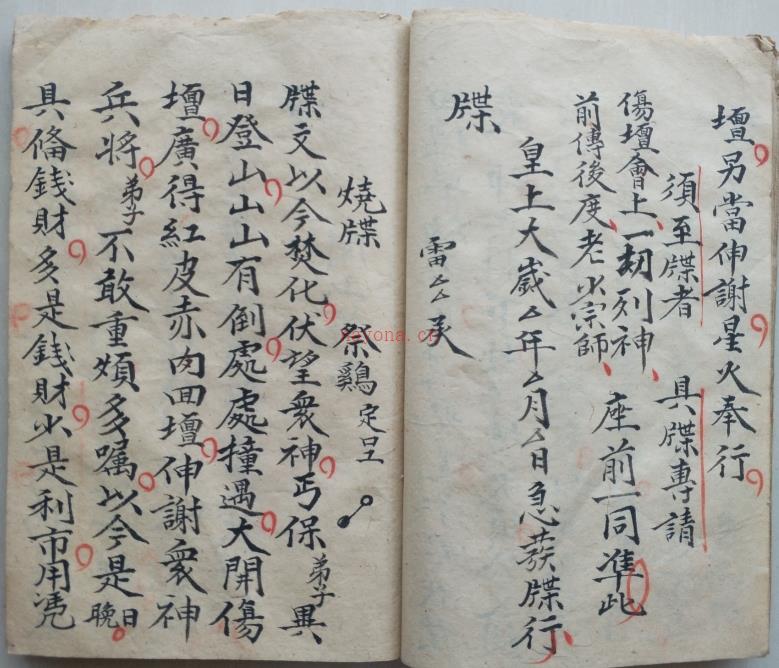 壇另當伸謝星火奉行
須至牒者 具牒專請
傷壇會上一切列神 座前一同準此
前傳後度老少宗師
皇上大歲厶年厶月厶日急蒺牒行
牒
雷厶厶天
燒牒 祭鷄
牒文以今焚化伏望衆神丐保弟子異
日登山山山有倒處處撞遇大開傷
壇廣得紅皮赤肉回壇伸謝衆神
兵將弟子不敢重煩多嘱以今是日晚
具俻錢財多是錢財少是利市用凴